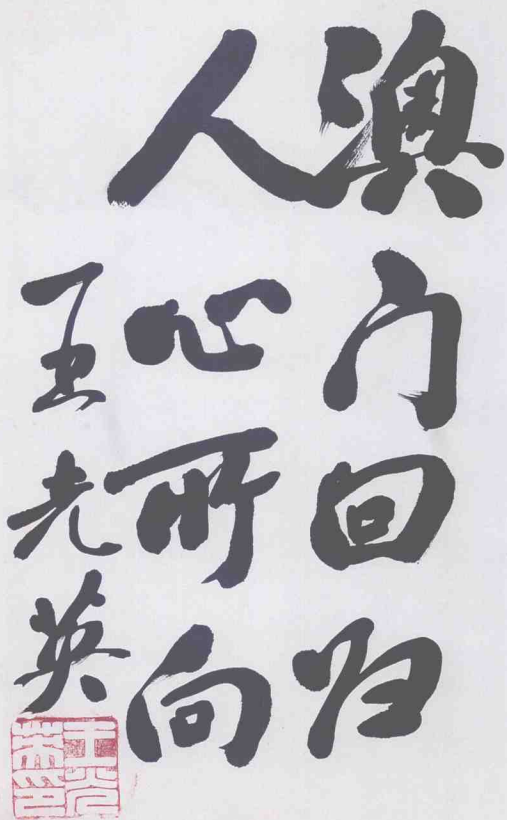 澳门回归
人心所向
王光英
王光英印